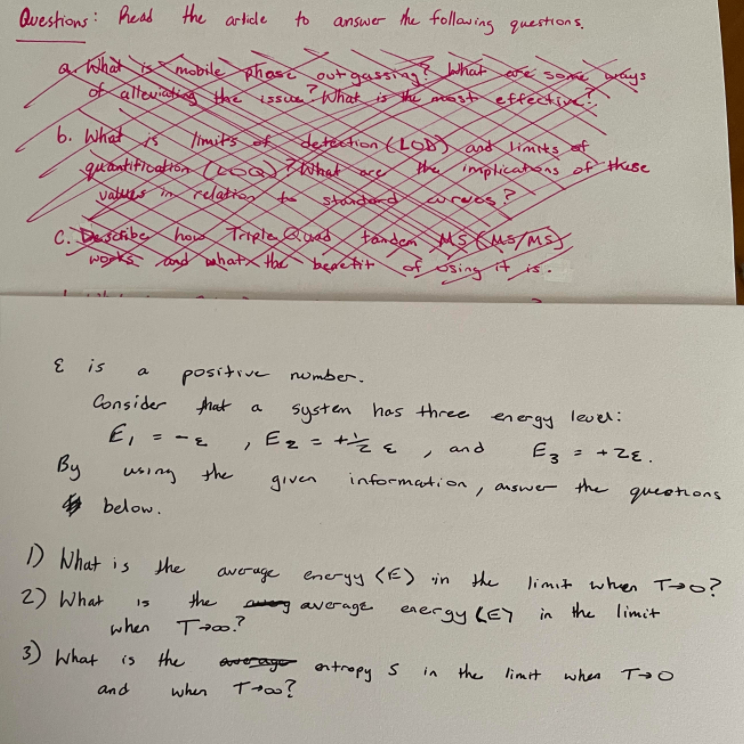 Questions: Read the article to answer the following questions.
a. What is mobile phase outgassing? What are some ways
of alleviating the issue? What is the most effective?
b. What is limits of detection (LOD) and limits of
quantification (LOQ)? What are the implications of these
values in relation to standard curves?
c. Describe how Triple Quad tandem MS (MS/MS)
works and what the benefit of using it is.
ε is a positive number.
Consider that a system has three energy level:
E₁ = -ε , E₂ = +½ ε , and E₃ = +2ε.
By using the given information, answer the questions
below.
1) What is the average energy ⟨E⟩ in the limit when T→0?
2) What is the average energy ⟨E⟩ in the limit
when T→∞?
3) What is the average entropy S in the limit when T→0
and when T→∞?